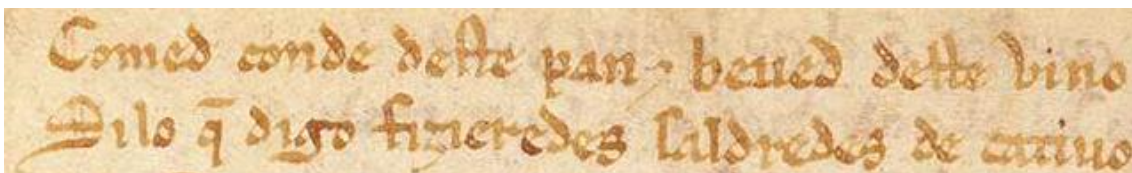 Comed conde deste pan ⁊ beued deste vino
Si lo q̃ digo fizieredes saldredes de catiuo